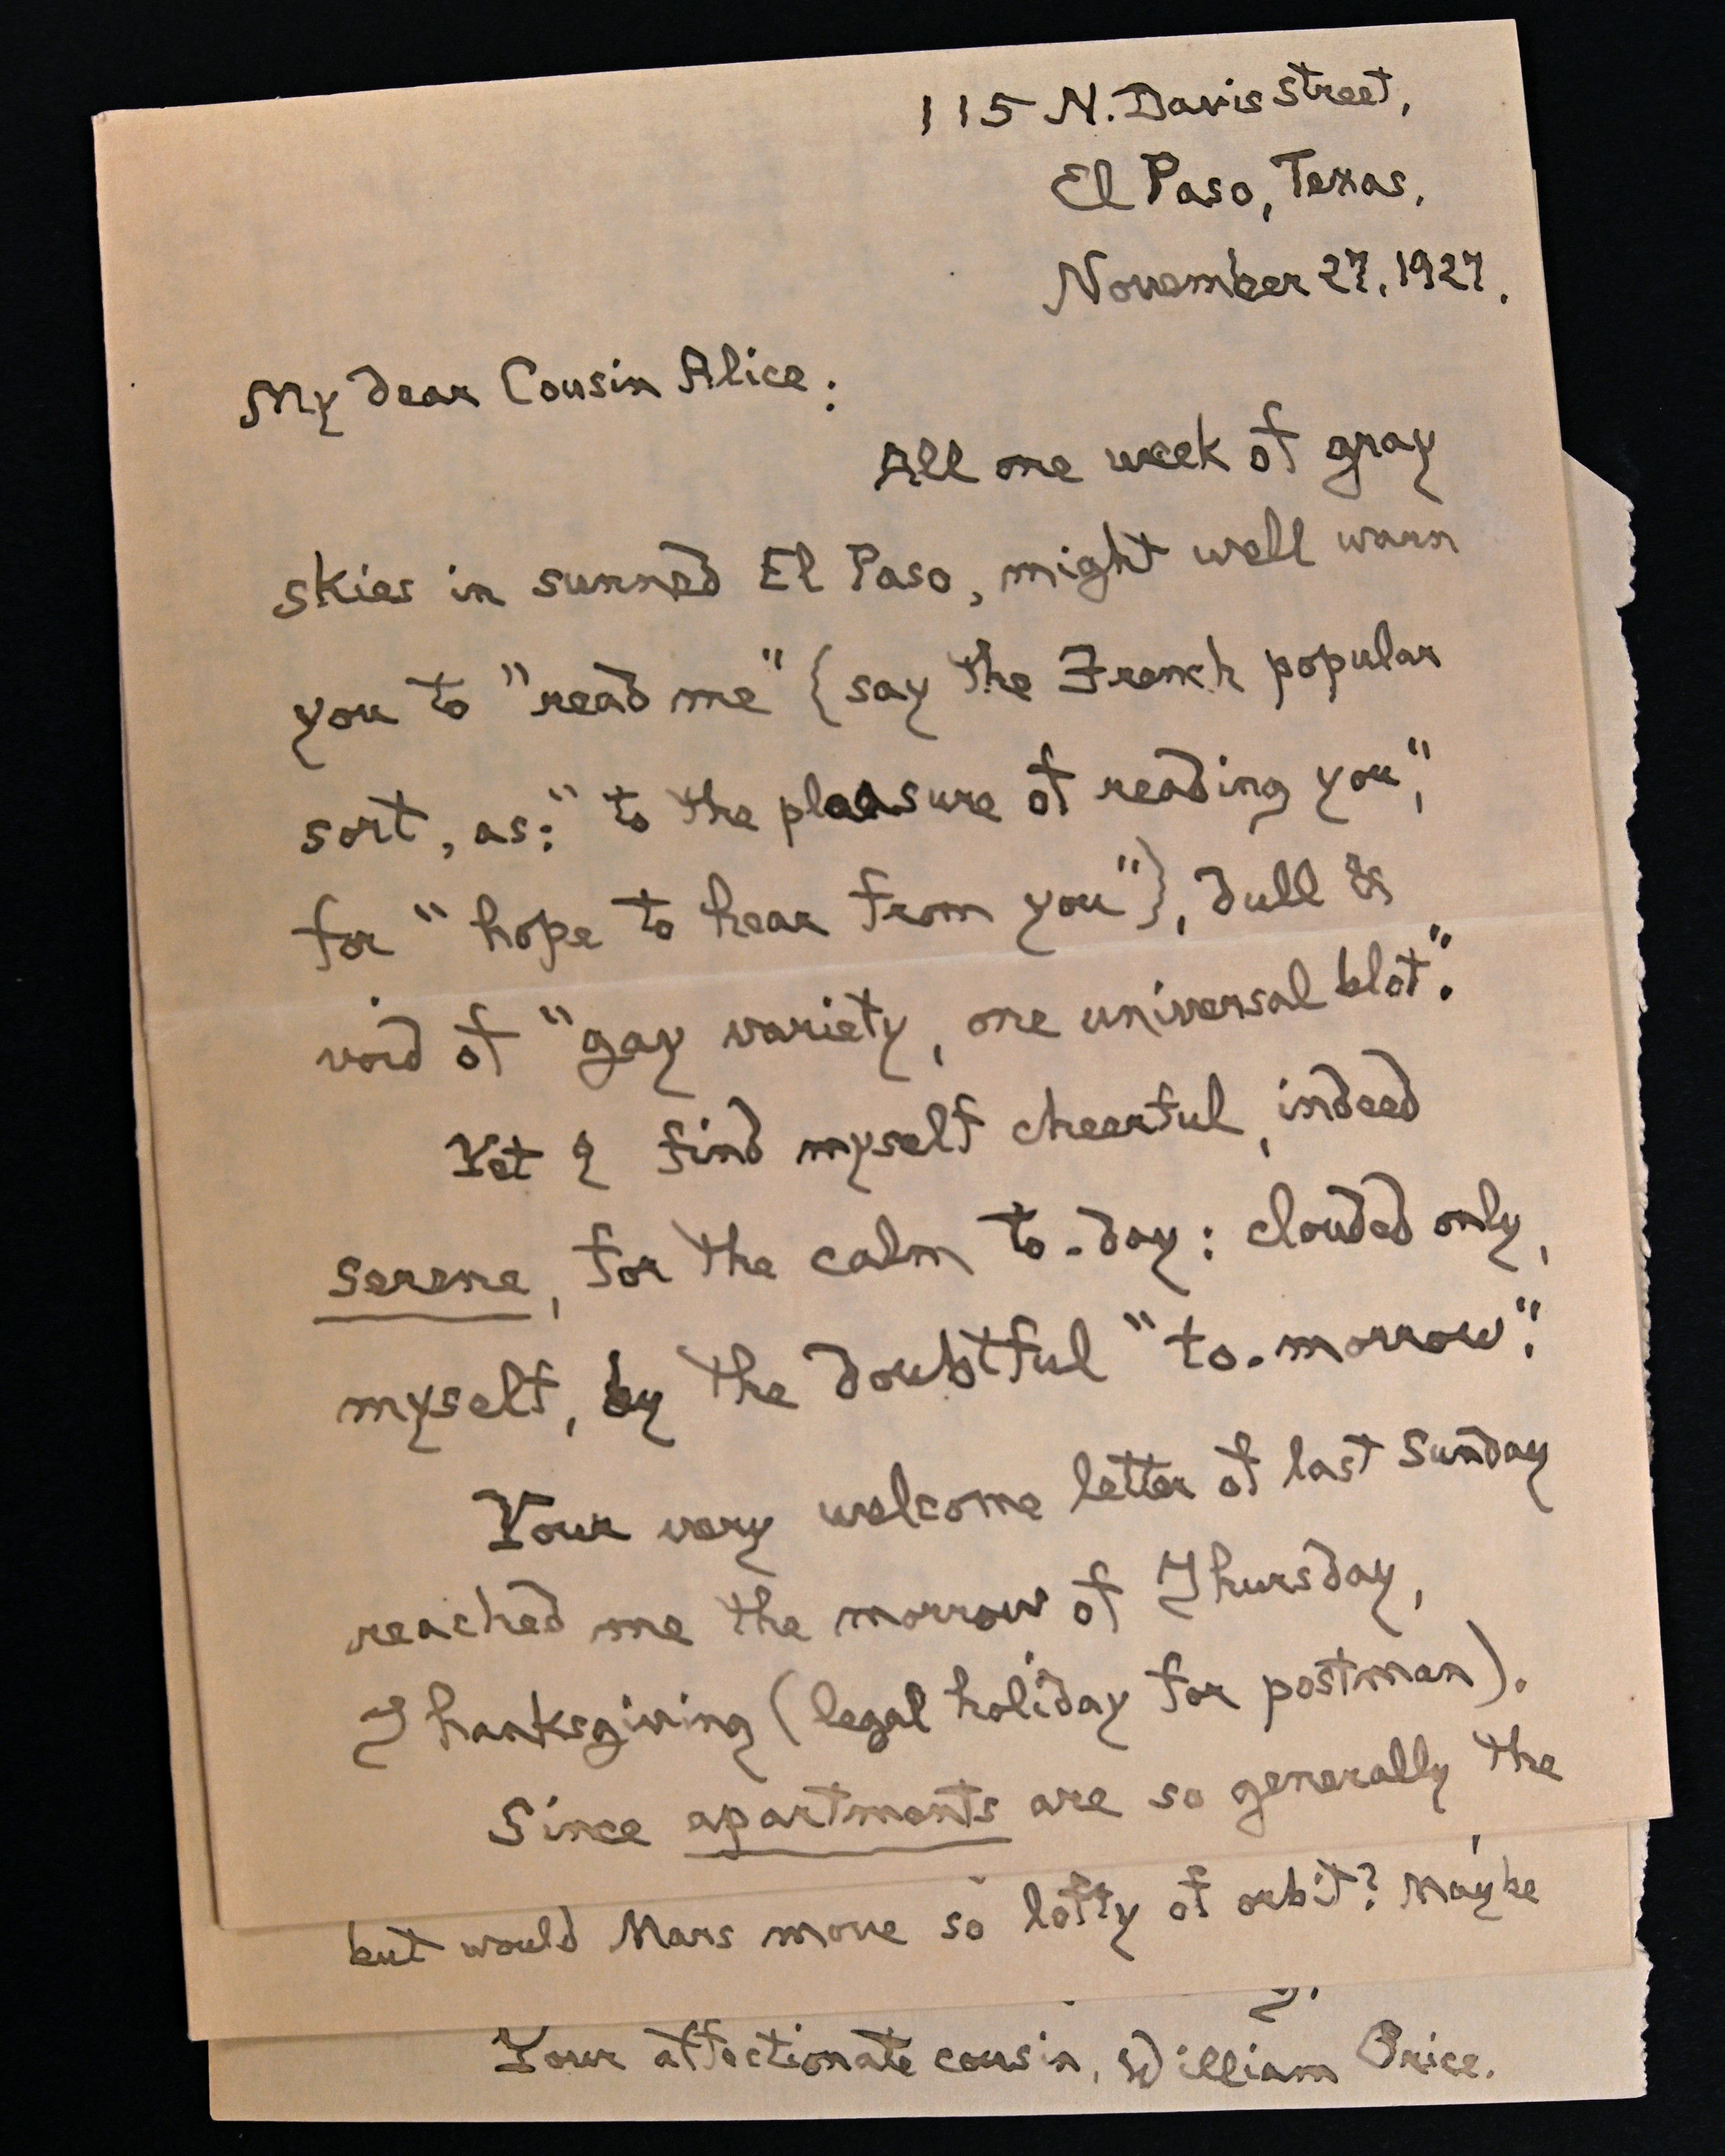 115 N. Davis Street,
El Paso, Texas,
November 27, 1927.
My dear Cousin Alice:
All one week of gray
skies in sunned El Paso, might well warn
you to "read me" {say the French popular
sort, as: "to the pleasure of reading you",
for "hope to hear from you"}, dull &
void of "gay variety, one universal blot".
Yet I find myself cheerful, indeed
serene, for the calm to-day: clouded only,
myself, by the doubtful "to-morrow".
Your very welcome letter of last Sunday
reached me the morrow of Thursday,
Thanksgiving (legal holiday for postman).
Since apartments are so generally the
but would Mars move so lofty of orbit? Maybe
Your affectionate cousin, William Price.